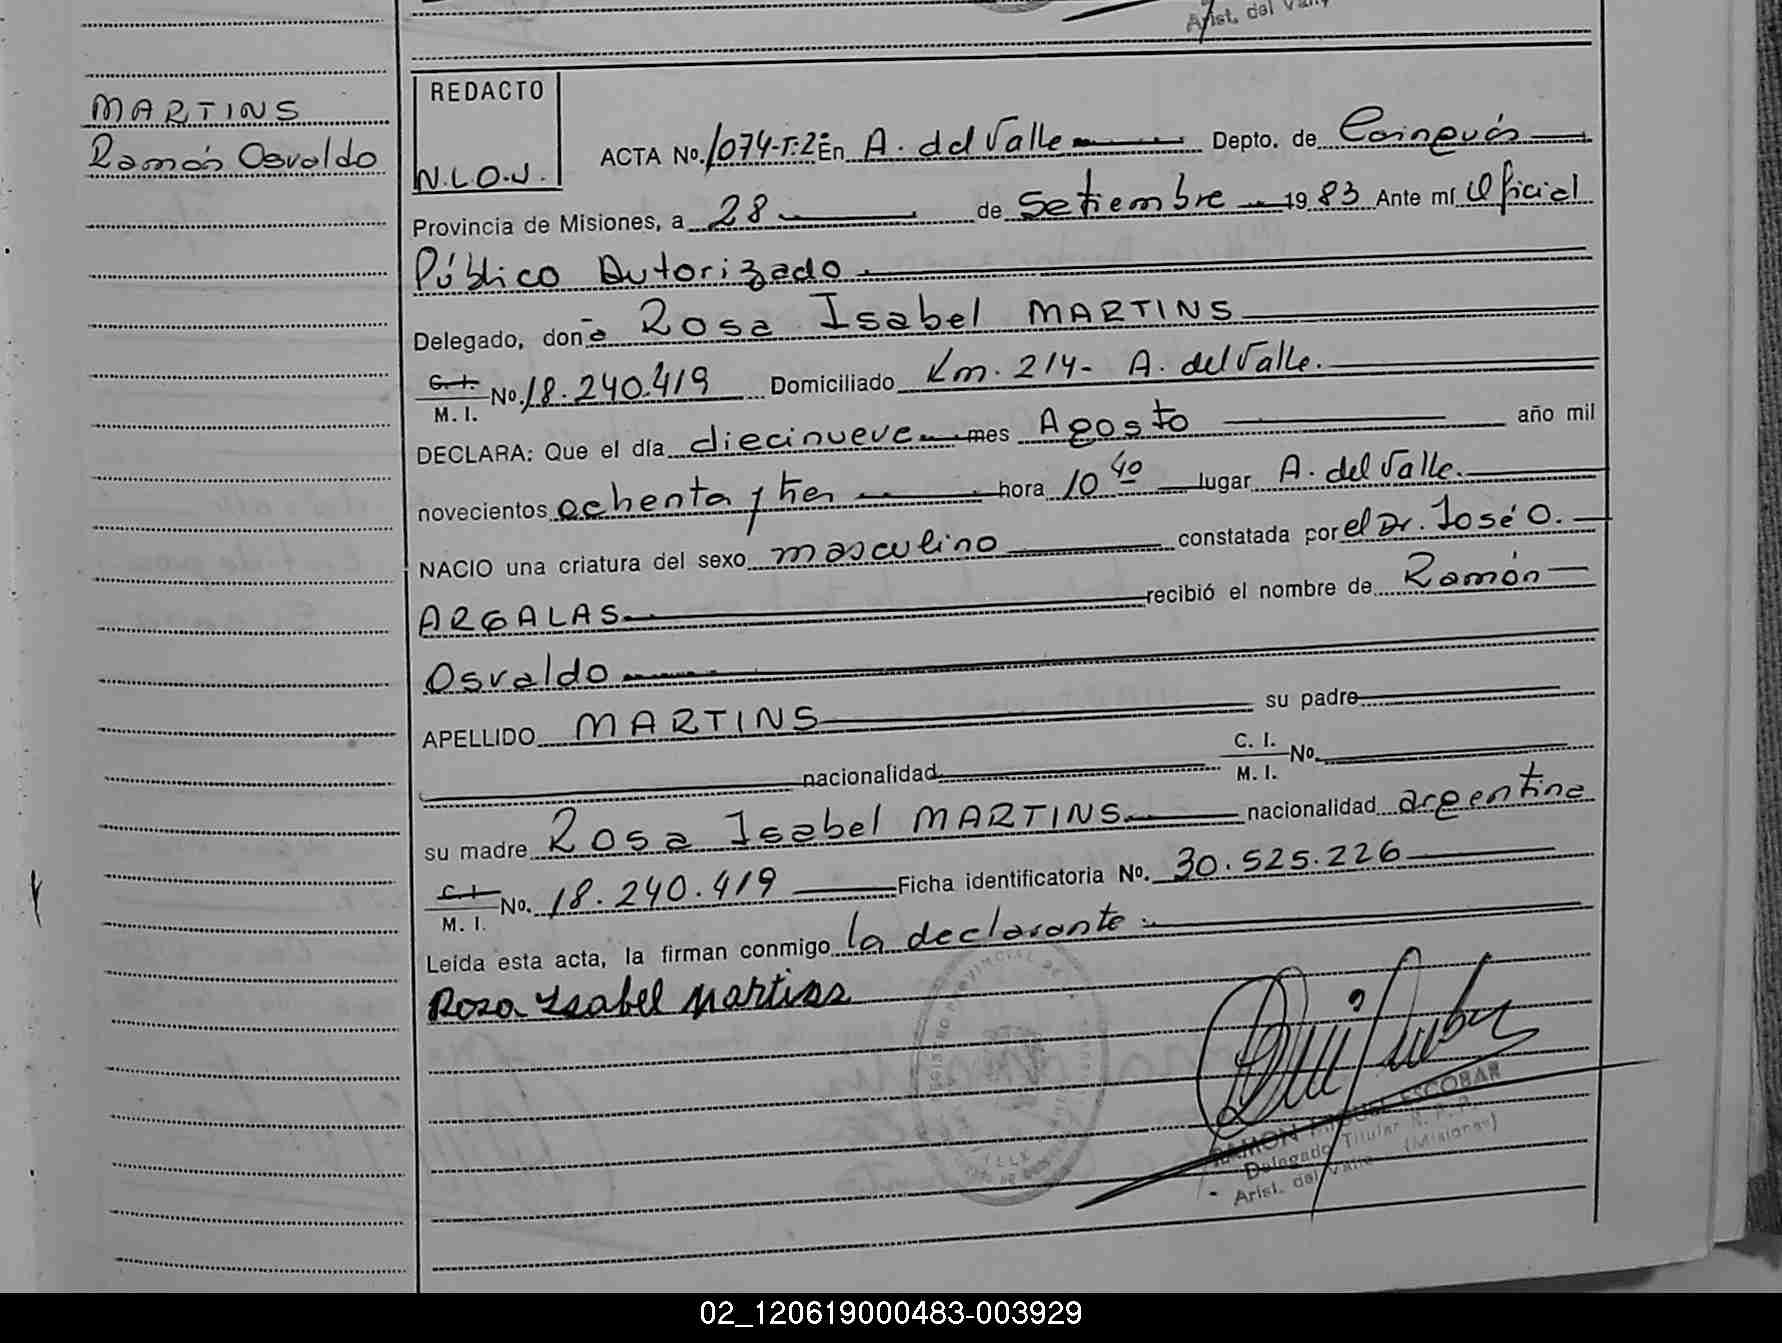 Arist. del Valle
MARTINS
Ramón Osvaldo
REDACTO
N.L.O.J.
ACTA No. 1074-T:2 En A. del Valle Depto. de Cainguás
Provincia de Misiones, a 28 de Setiembre 1983 Ante mí Oficial
Público Autorizado
Delegado, doña Rosa Isabel MARTINS
C. I.
M. I. No. 18.240.419 Domiciliado Km. 214- A. del Valle.
DECLARA: Que el día diecinueve mes Agosto año mil
novecientos ochenta y tres hora 10 40 lugar A. del Valle.
NACIO una criatura del sexo masculino constatada por el Dr. José O.
ARGALAS recibió el nombre de Ramón
Osvaldo
APELLIDO MARTINS su padre
nacionalidad C. I. M. I. No.
su madre Rosa Isabel MARTINS nacionalidad argentina
C. I.
M. I. No. 18.240.419 Ficha identificatoria No. 30.525.226
Leída esta acta, la firman conmigo la declarante.
Rosa Isabel Martins
RAMON MIGUEL ESCOBAR
Delegado Titular R. P. P.
Arist. del Valle (Misiones)
02_120619000483-003929